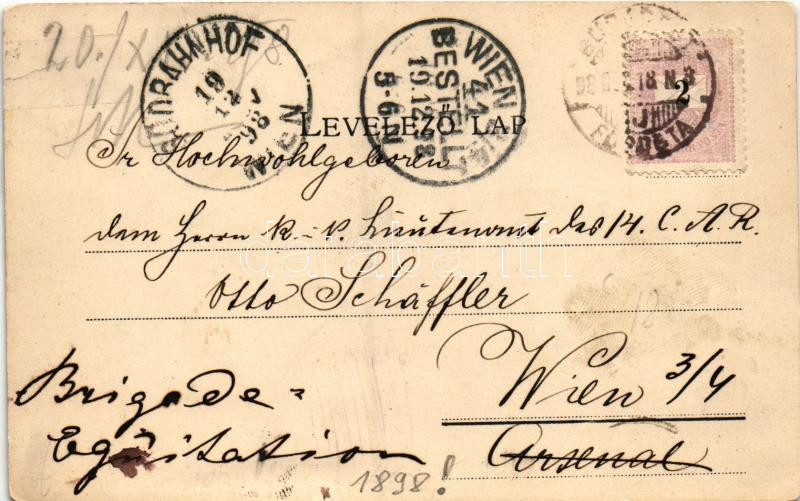 SÜDBAHNHOF
19 12 98
WIEN
WIEN 4/1
BESTELLT
19.12.98
5-6 N
2
LEVELEZŐ LAP
Sr Hochwohlgeboren
dem Herrn K. u. K. Lieutenant des 14. C. A. R.
Otto Schäffler
Wien 3/4
Arsenal
Brigade-
Equitation
1898!
darabanth